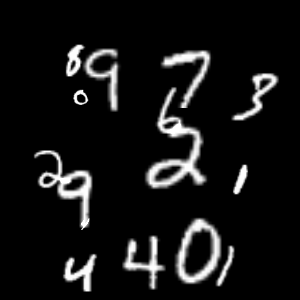 8 9 7 3
0 6
2 9 2 1
4 4 0 1